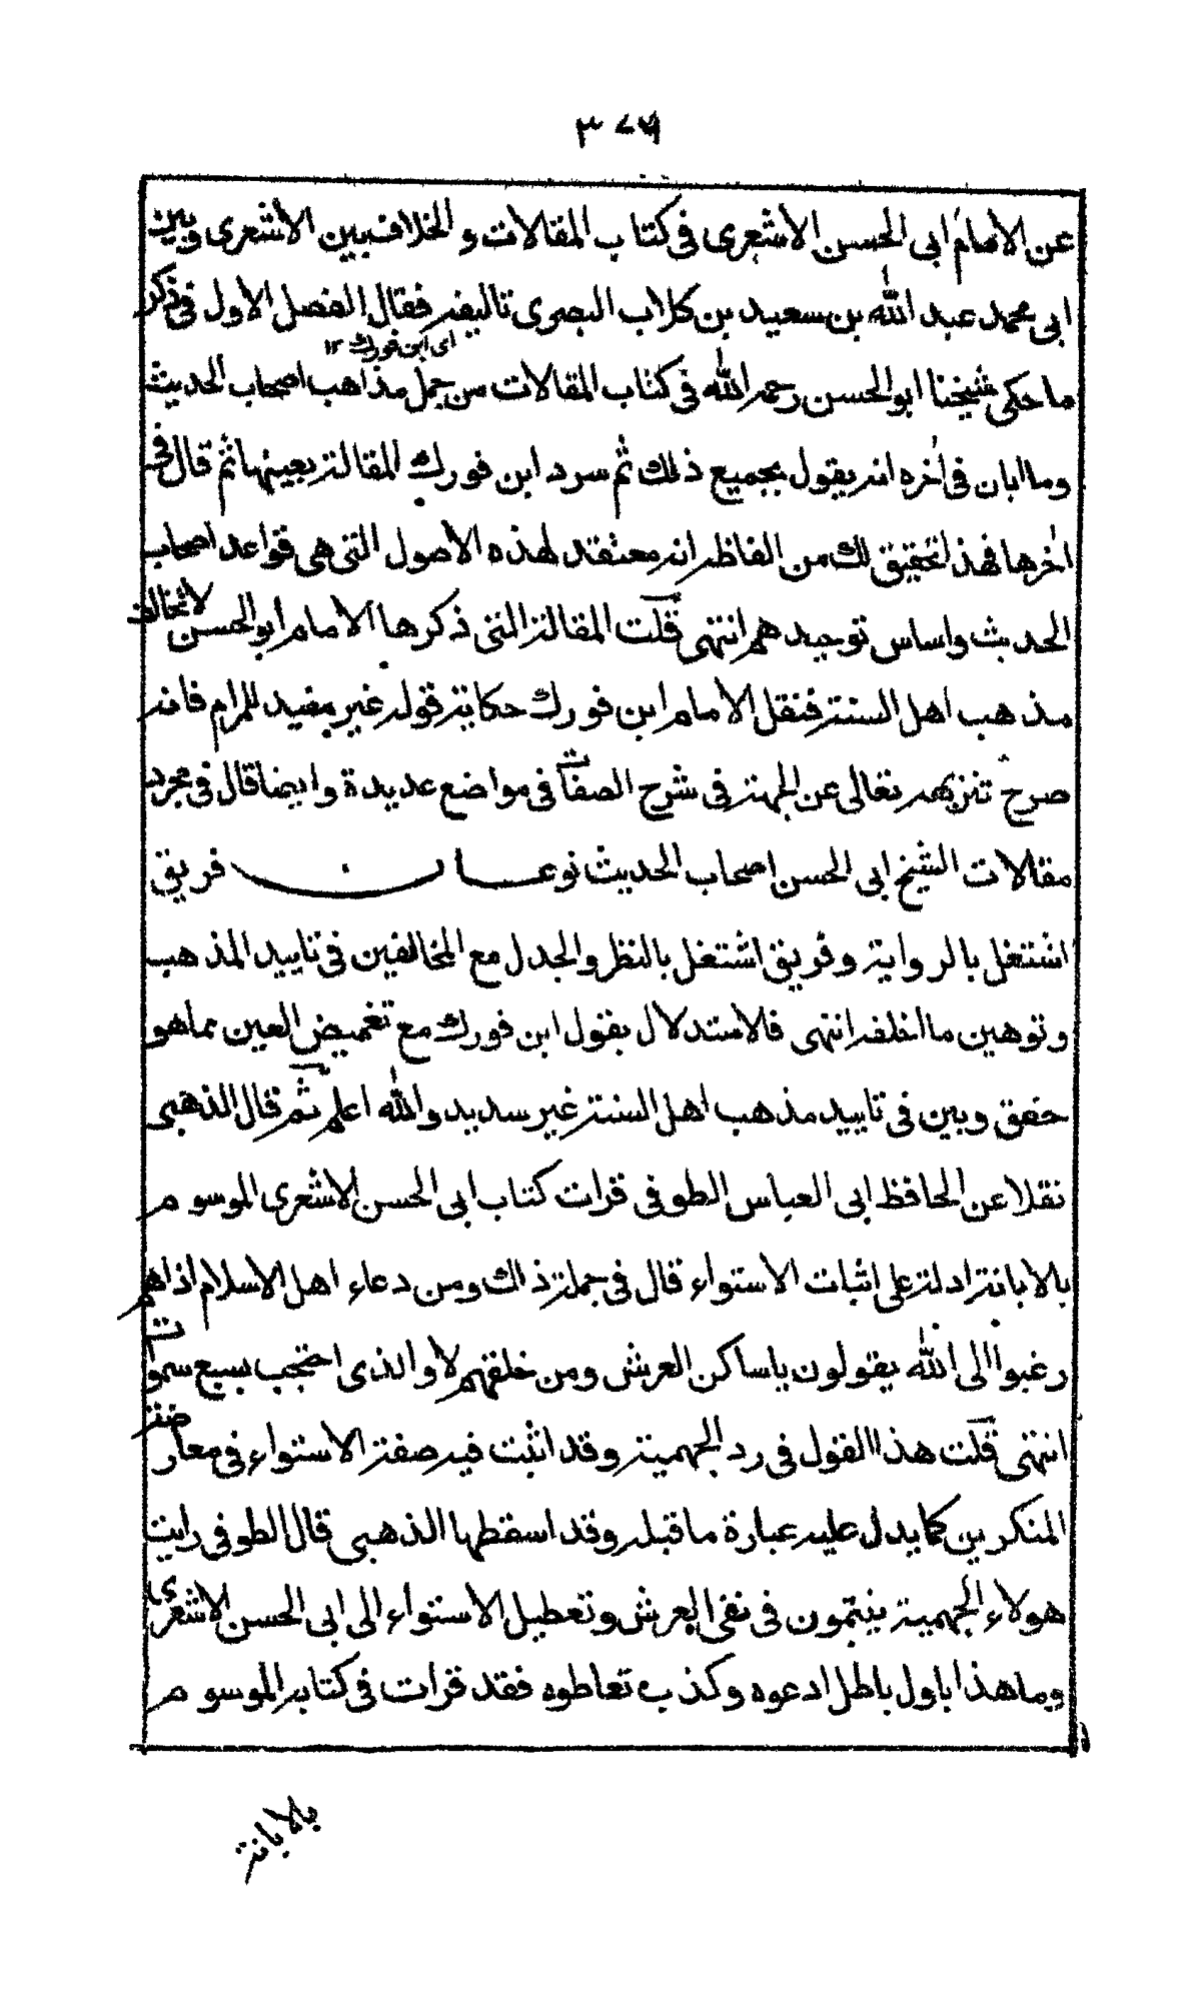 ٣٧٦
عن الامام ابى الحسن الاشعرى فى كتاب المقالات والخلاف بين الاشعرى وبين
ابى محمد عبد الله بن سعيد بن كلاب البصرى تاليفه فقال الفصل الاول فى ذكر
اى ابن فورك ١٢
ما حكى شيخنا ابو الحسن رحمه الله فى كتاب المقالات من جمل مذاهب اصحاب الحديث
وما ابان فى اخره انه يقول بجميع ذلك ثم سرد ابن فورك المقالة بعينها ثم قال فى
اخرها فهذا تحقيق لك من الفاظه انه معتقد لهذه الاصول التى هى قواعد اصحاب
الحديث واساس توحيدهم انتهى قلت المقالة التى ذكرها الامام ابو الحسن لا تخالف
مذهب اهل السنة فنقل الامام ابن فورك حكاية قوله غير مفيد للمرام فانه
صرح تنزيهه تعالى عن الجهة فى شرح الصفات فى مواضع عديدة وايضا قال فى مجرد
مقالات الشيخ ابى الحسن اصحاب الحديث نوعان فريق
اشتغل بالرواية وفريق اشتغل بالنظر والجدل مع المخالفين فى تاييد المذهب
وتوهين ما خلفه انتهى فالاستدلال بقول ابن فورك مع تغميض العين مما هو
حقق وبين فى تاييد مذهب اهل السنة غير سديد والله اعلم ثم قال الذهبى
نقلا عن الحافظ ابى العباس الطوفى قرات كتاب ابى الحسن الاشعرى الموسوم
بالابانة ادلة على اثبات الاستواء قال فى جملة ذالك ومن دعاء اهل الاسلام اذا هم
رغبوا الى الله يقولون يا ساكن العرش ومن خلقهم لا والذى احتجب بسبع سموات
انتهى قلت هذا القول فى رد الجهمية وقد اثبت فيه صفة الاستواء فى معارضة
المنكرين كما يدل عليه عبارة ما قبله وقد اسقطها الذهبى قال الطوفى رايت
هولاء الجهمية ينتمون فى نفى العرش وتعطيل الاستواء الى ابى الحسن الاشعرى
وما هذا باول باطل ادعوه وكذب تعاطوه فقد قرات فى كتابه الموسوم
بالابانة